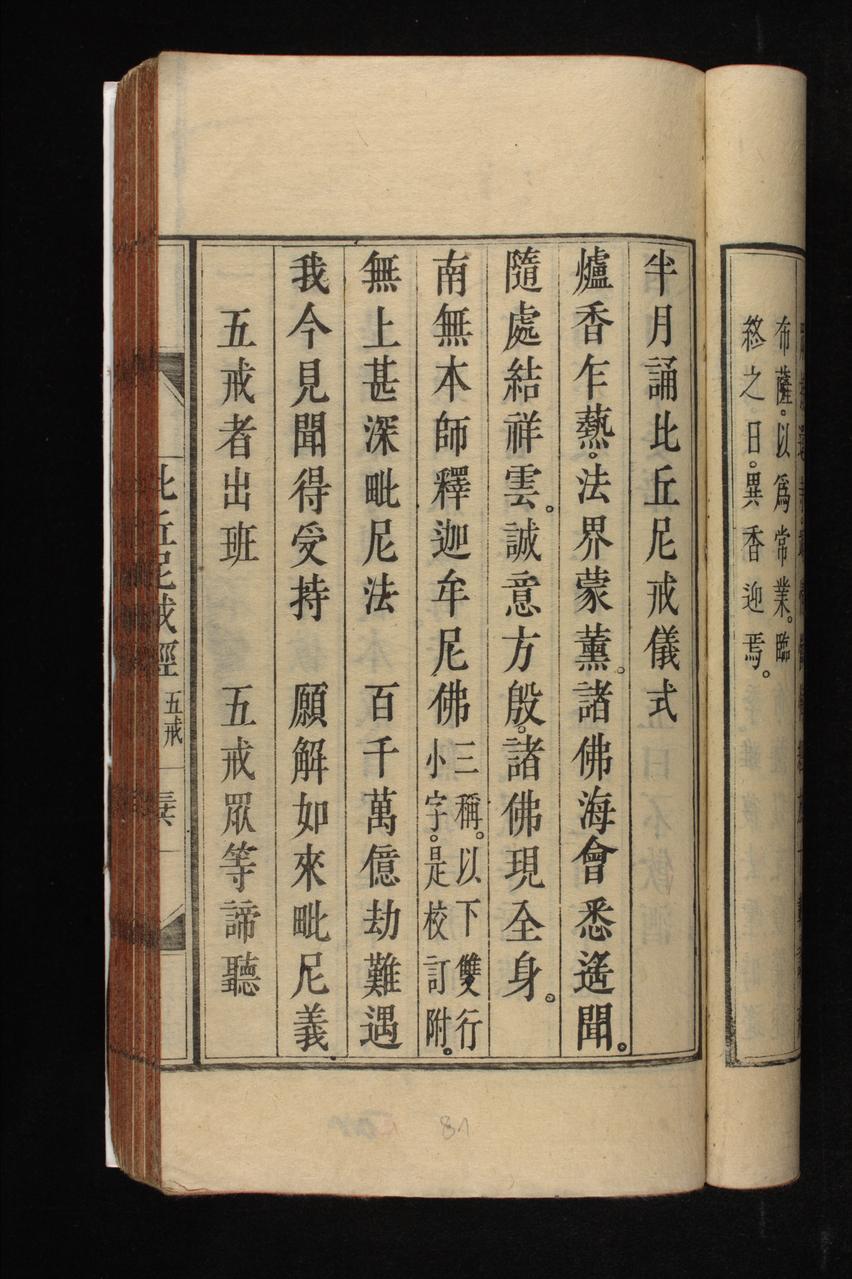 布薩。以爲常業。臨
終之日。異香迎焉。
半月誦比丘尼戒儀式
爐香乍爇。法界蒙薰。諸佛海會悉遙聞。
隨處結祥雲。誠意方殷。諸佛現全身。
南無本師釋迦牟尼佛三稱。以下雙行小字。是校訂附。
無上甚深毗尼法 百千萬億劫難遇
我今見聞得受持 願解如來毗尼義
五戒者出班 五戒眾等諦聽
比丘尼戒經 五戒
81